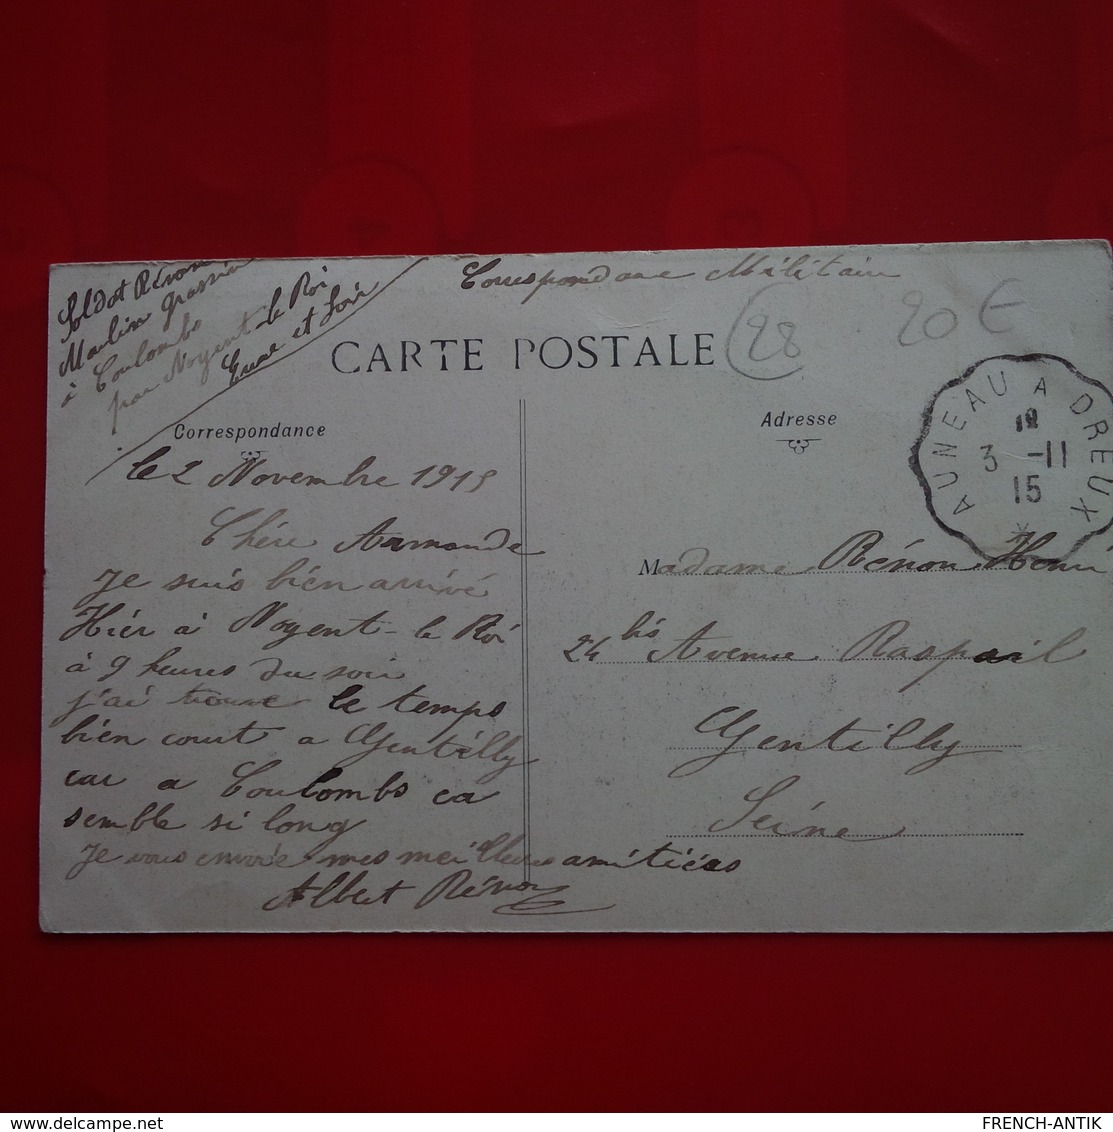 Soldat Rénon
Moulin Grassin
à Coulombs
par Nogent-le Roi
Eure et Loir
Correspondance Militaire
28
20€
CARTE POSTALE
Correspondance
Adresse
AUNEAU A DREUX
3 -11
15
*
le 2 Novembre 1915
Chère Armande
Je suis bien arrivé
Hièr à Nogent-le Roi
à 9 heures du soir
j'ai trouvé le temps
bien court a Gentilly
car a Coulombs ca
semble si long
Je vous envoie mes meilleures amitiées
Albert Rénon
Madame Rénon Henri
24 bis Avenue Raspail
Gentilly
Seine
delcampe.net
FRENCH-ANTIK